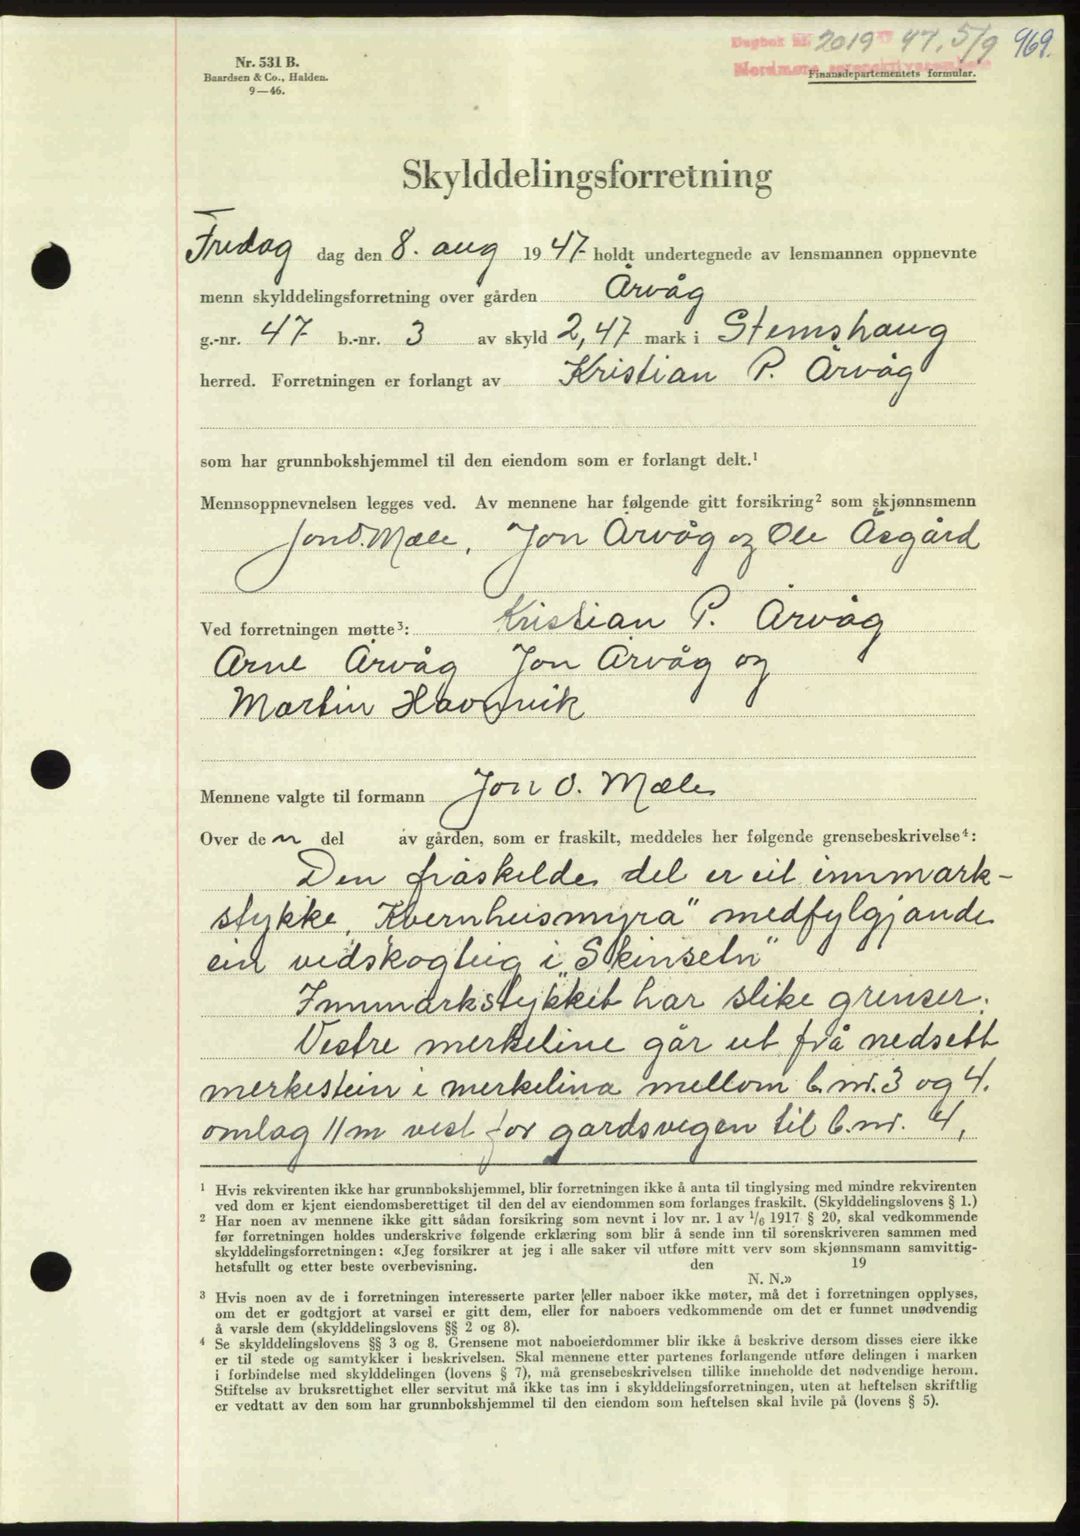 Dagbok nr. 2019 47. 5/9 969.
Nordmøre sorenskriverembete
Nr. 531 B.
Baardsen & Co., Halden.
9—46.
Finansdepartementets formular.
Skylddelingsforretning
Fredag dag den 8. aug 1947 holdt undertegnede av lensmannen oppnevnte
menn skylddelingsforretning over gården Årvåg
g.-nr. 47 b.-nr. 3 av skyld 2,47 mark i Stemshaug
herred. Forretningen er forlangt av Kristian P. Årvåg
som har grunnbokshjemmel til den eiendom som er forlangt delt.¹
Mennsoppnevnelsen legges ved. Av mennene har følgende gitt forsikring² som skjønnsmenn
Jon O. Mæle, Jon Årvåg og Ole Åsgård
Ved forretningen møtte³: Kristian P. Årvåg
Arne Årvåg Jon Årvåg og
Martin Havnvik
Mennene valgte til formann Jon O. Mæle
Over den del av gården, som er fraskilt, meddeles her følgende grensebeskrivelse⁴:
Den fråskelde del er eit innmark-
stykke, "Kvernhusmyra" medfylgjande
ein vedskogteig i "Skinsetn"
Innmarkstykket har slike grenser:
Vestre merkeline går ut frå nedsett
merkestein i merkelina mellom b.nr. 3 og 4.
omlag 11 m vest for gardsvegen til b.nr. 4,
¹ Hvis rekvirenten ikke har grunnbokshjemmel, blir forretningen ikke å anta til tinglysing med mindre rekvirenten
ved dom er kjent eiendomsberettiget til den del av eiendommen som forlanges fraskilt. (Skylddelingslovens § 1.)
² Har noen av mennene ikke gitt sådan forsikring som nevnt i lov nr. 1 av 1/6 1917 § 20, skal vedkommende
før forretningen holdes underskrive følgende erklæring som blir å sende inn til sorenskriveren sammen med
skylddelingsforretningen: «Jeg forsikrer at jeg i alle saker vil utføre mitt verv som skjønnsmann samvittig-
hetsfullt og etter beste overbevisning. den 19
N. N.»
³ Hvis noen av de i forretningen interesserte parter eller naboer ikke møter, må det i forretningen opplyses,
om det er godtgjort at varsel er gitt dem, eller for naboers vedkommende om det er funnet unødvendig
å varsle dem (skylddelingslovens §§ 2 og 8).
⁴ Se skylddelingslovens §§ 3 og 8. Grensene mot naboeiendommer blir ikke å beskrive dersom disses eiere ikke
er til stede og samtykker i beskrivelsen. Skal mennene etter partenes forlangende utføre delingen i marken
i forbindelse med skylddelingen (lovens § 7), må grensebeskrivelsen tillike inneholde det nødvendige herom.
Stiftelse av bruksrettighet eller servitut må ikke tas inn i skylddelingsforretningen, uten at heftelsen skriftlig
er vedtatt av den som har grunnbokshjemmel til den eiendom som heftelsen skal hvile på (lovens § 5).